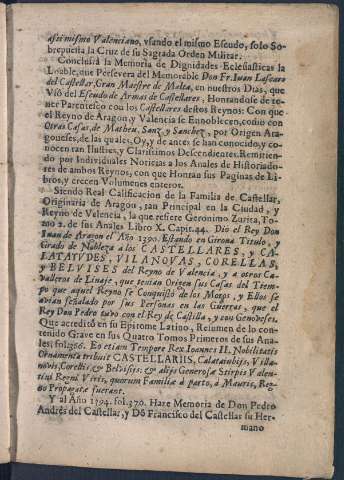 assi mismo Valenciano, vsando el mismo Escudo, solo So-
brepuesta la Cruz de su Sagrada Orden Militar.
Concluirá la Memoria de Dignidades Eclesiasticas la
Loable, que Persevera del Memorable Don Fr. Iuan Lascaro
del Castellar, Gran Maestre de Malta, en nuestros Dias, que
Vsó del Escudo de Armas de Castellares, Honrandose de te-
ner Parentesco con los Castellares destos Reynos: Con que
el Reyno de Aragon, y Valencia se Ennoblecen, como con
Otras Casas, de Matheu, Sanz, y Sanchez, por Origen Ara-
goneses, de las quales, Oy, y de antes se han conocido, y co-
nocen tan Ilustres, y Clarissimos Descendientes. Remitien-
do por Individuales Noticias a los Anales de Historiado-
res de ambos Reynos, con que Hontan sus Paginas de Li-
bros, y crecen Volumenes enteros.
Siendo Real Calificacion de la Familia de Castellar,
Originaria de Aragon, tan Principal en la Ciudad, y
Reyno de Valencia, la que refiere Geronimo Zurita, To-
mo 2. de sus Anales Libro X. Capit. 44. Dió el Rey Don
Iuan de Aragon el Año 1390. Estando en Girona Titulo, y
Grado de Nobleza a los CASTELLARES, Y CA-
LATATUDES, VILANOVAS, CORELLAS,
y BELVISES del Reyno de Valencia, y a otros Ca-
valleros de Linaje, que tenian Origen sus Casas del Tiem-
po que aquel Reyno se Conquistó de los Moros, y Ellos se
avian señalado por sus Personas en las Guerras, que el
Rey Don Pedro tuvo con el Rey de Castilla, y con Genoveses.
Que acreditó en su Epitome Latino, Resumen de lo con-
tenido Grave en sus Quatro Tomos Primeros de sus Ana-
les, fol. 366. Eo etiam Tempore Rex Ioannes II. Nobilitatis
Ornamenta tribuit CASTELLARIIS, Calataiubijs, Villa-
novis, Corellis, & Belvisis: & alijs Generosæ Stirpis Valen-
tini Regni Viris, quorum Familiæ à parto, à Mauris, Reg-
no Propagatæ fuerant.
Y al Año 1394. fol. 370. Hare Memoria de Don Pedro
Andrés del Castellar, y Dō Francisco del Castellar su Her-
mano